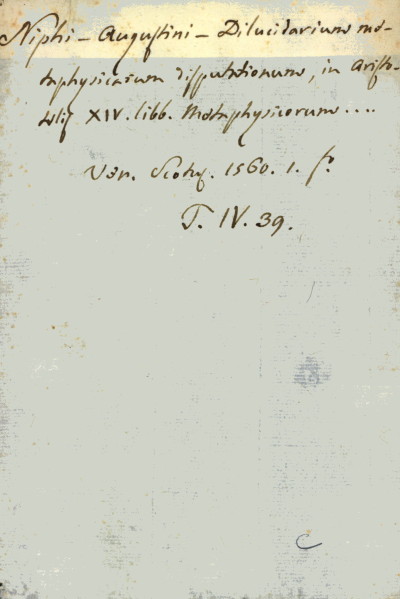 Niphi – Augustini – Dilucidarium me-
taphysicarum disputationum, in Aristo-
telis XIV. libb. Metaphysicorum ....
Ven. Scoty. 1560. 1. f°.
T. IV. 39.